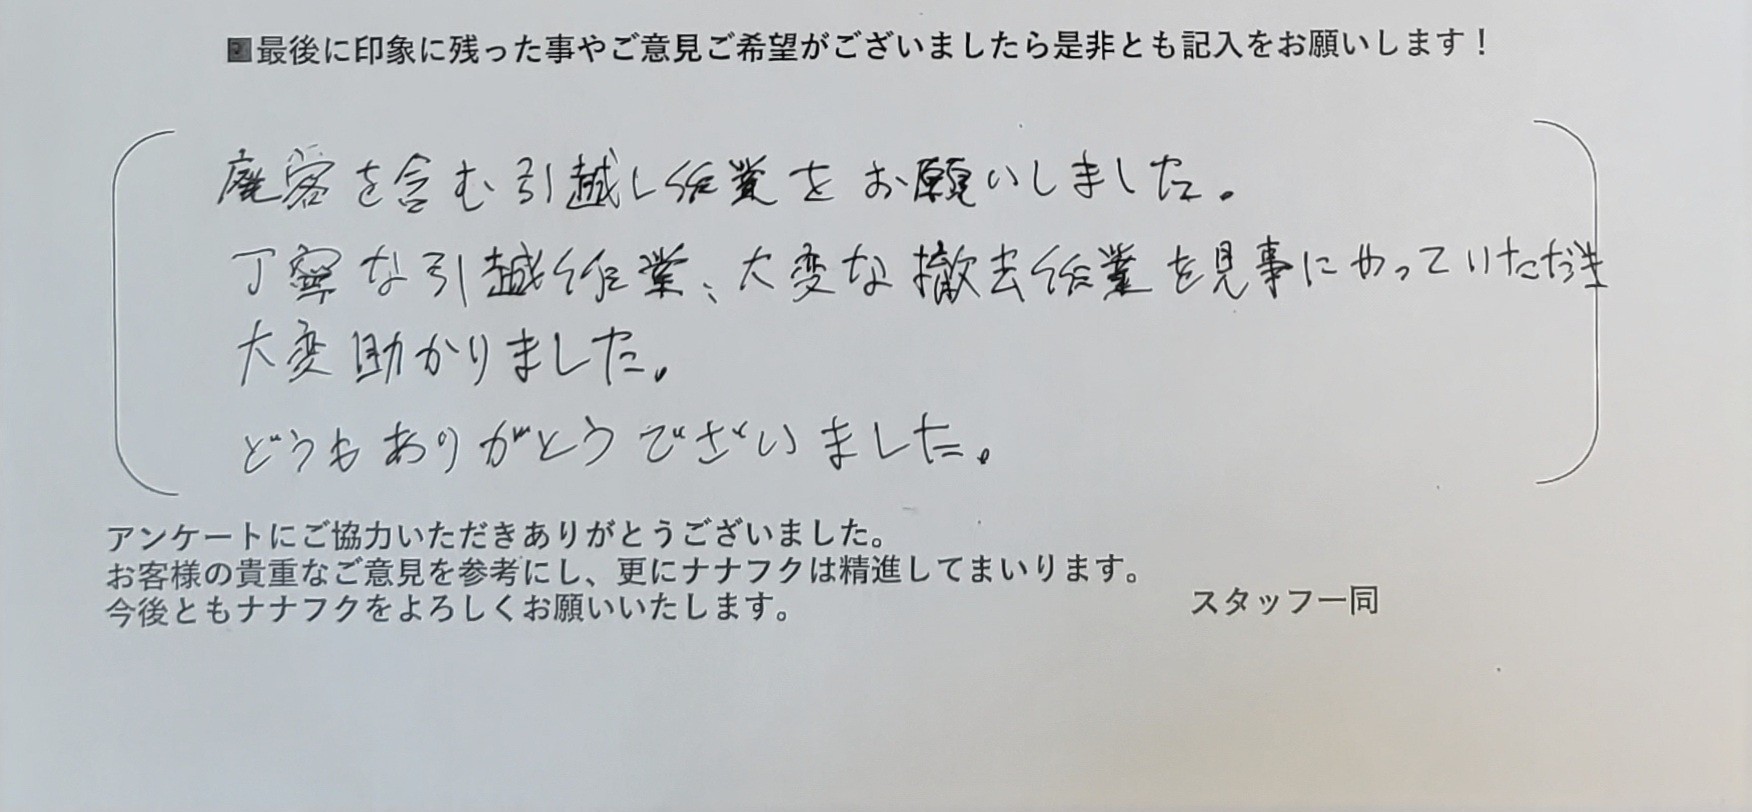 ■最後に印象に残った事やご意見ご希望がございましたら是非とも記入をお願いします！
廃棄を含む引越し作業をお願いしました。
丁寧な引越作業、大変な撤去作業を見事にやっていただき
大変助かりました。
どうもありがとうございました。
アンケートにご協力いただきありがとうございました。
お客様の貴重なご意見を参考にし、更にナナフクは精進してまいります。
今後ともナナフクをよろしくお願いいたします。
スタッフ一同